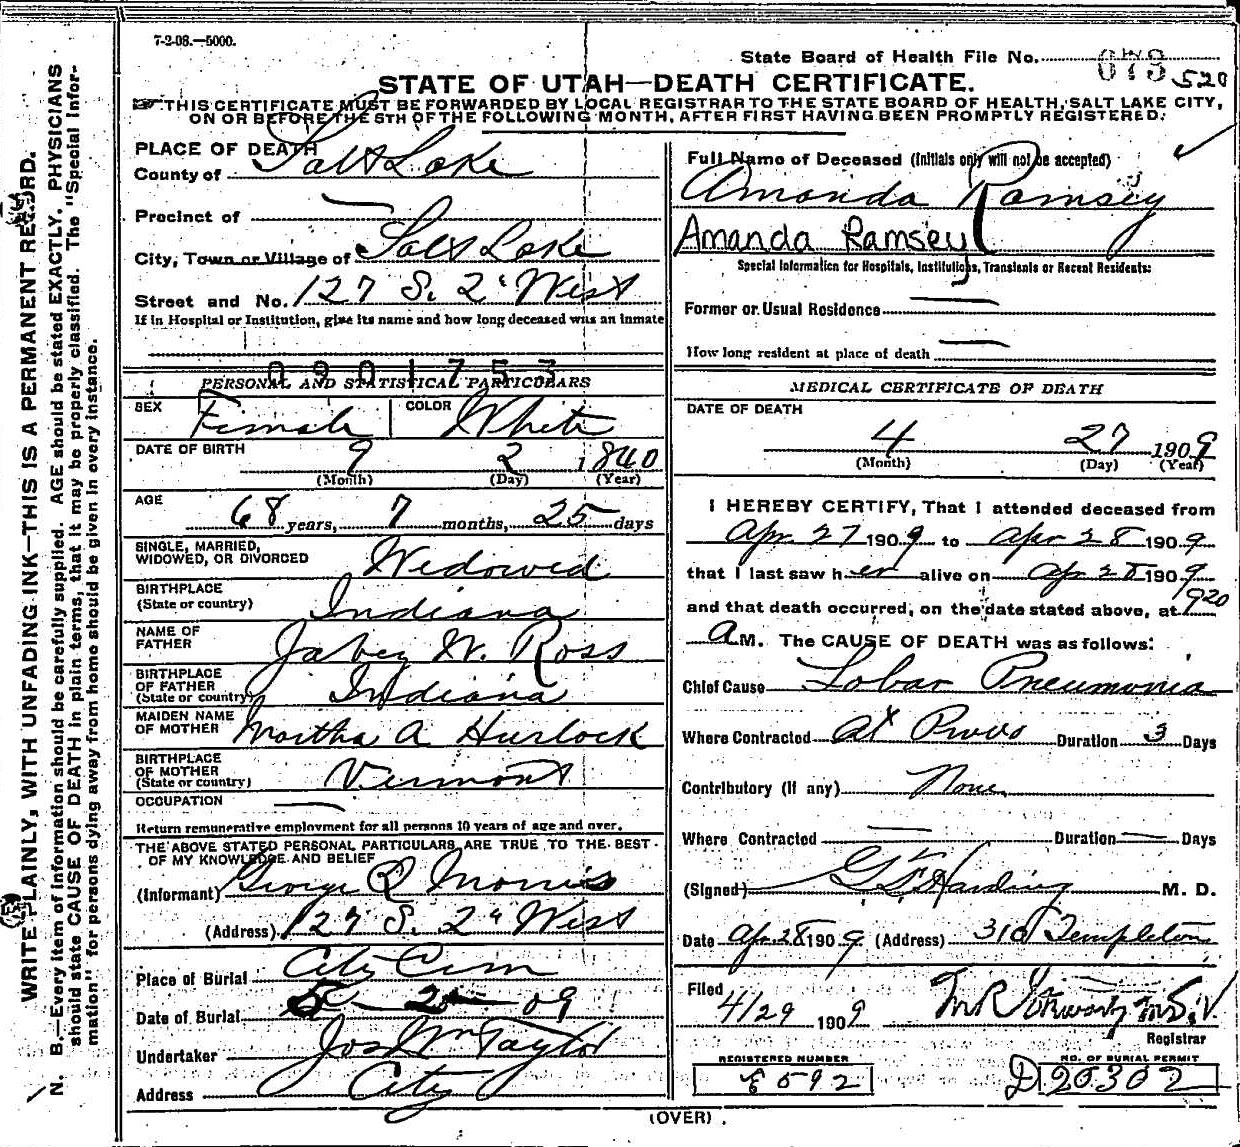 7-2-08.—5000.
State Board of Health File No. 520
STATE OF UTAH—DEATH CERTIFICATE.
THIS CERTIFICATE MUST BE FORWARDED BY LOCAL REGISTRAR TO THE STATE BOARD OF HEALTH, SALT LAKE CITY,
ON OR BEFORE THE 5TH OF THE FOLLOWING MONTH, AFTER FIRST HAVING BEEN PROMPTLY REGISTERED.
WRITE PLAINLY, WITH UNFADING INK—THIS IS A PERMANENT RECORD.
N. B.—Every item of information should be carefully supplied. AGE should be stated EXACTLY. PHYSICIANS
should state CAUSE OF DEATH in plain terms, that it may be properly classified. The "Special Infor-
mation" for persons dying away from home should be given in every instance.
PLACE OF DEATH
County of Salt Lake
Precinct of —
City, Town or Village of Salt Lake
Street and No. 127 S. 2d West
If in Hospital or Institution, give its name and how long deceased was an inmate
0901753
PERSONAL AND STATISTICAL PARTICULARS
SEX Female COLOR White
DATE OF BIRTH 9 2 1840
(Month) (Day) (Year)
AGE 68 years, 7 months, 25 days
SINGLE, MARRIED,
WIDOWED, OR DIVORCED Widowed
BIRTHPLACE
(State or country) Indiana
NAME OF
FATHER Jabez W. Ross
BIRTHPLACE
OF FATHER
(State or country) Indiana
MAIDEN NAME
OF MOTHER Martha A Hurlock
BIRTHPLACE
OF MOTHER
(State or country) Vermont
OCCUPATION —
Return remunerative employment for all persons 10 years of age and over.
THE ABOVE STATED PERSONAL PARTICULARS ARE TRUE TO THE BEST
OF MY KNOWLEDGE AND BELIEF
(Informant) George Q Morris
(Address) 127 S. 2d West
Place of Burial City Cem
Date of Burial 5 - 2 - 09
Undertaker Jos Wm Taylor
Address City
Full Name of Deceased (Initials only will not be accepted)
Amanda Ramsey
Amanda Ramsey
Special Information for Hospitals, Institutions, Transients or Recent Residents:
Former or Usual Residence —
How long resident at place of death —
MEDICAL CERTIFICATE OF DEATH
DATE OF DEATH
4 27 1909
(Month) (Day) (Year)
I HEREBY CERTIFY, That I attended deceased from
Apr. 27 1909 to Apr 28 1909
that I last saw her alive on Ap 28 1909
and that death occurred, on the date stated above, at 920
A M. The CAUSE OF DEATH was as follows:
Chief Cause Lobar Pneumonia
Where Contracted at Provo Duration 3 Days
Contributory (if any) None
Where Contracted — Duration — Days
(Signed) Harding M. D.
Date Apr 28 1909 (Address) 310 Templeton
Filed
4/29 1909
Registrar
REGISTERED NUMBER
NO. OF BURIAL PERMIT
D 20302
(OVER)